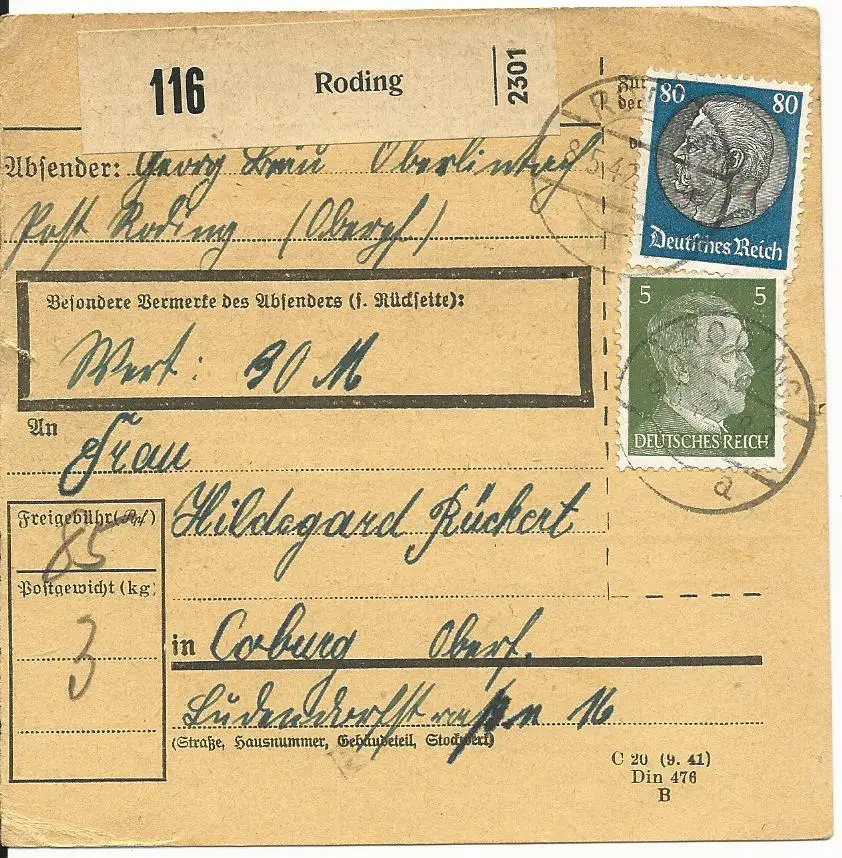 116 Roding 2301
Zur
der
80 80
Deutsches Reich
8.5.42
Absender: Georg Bräu Oberlintach
Post Roding (Obergf)
Besondere Vermerke des Absenders (s. Rückseite):
Wert: 30 M
5 5
DEUTSCHES REICH
RODING
a
An
Frau
Hildegard Rückert
Freigebühr (Rpf)
85
Postgewicht (kg)
3
in Coburg Oberf.
Ludendorffstraße 16
(Straße, Hausnummer, Gebäudeteil, Stockwerk)
C 20 (9. 41)
Din 476
B